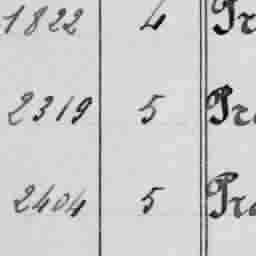 1822 4 Pr
2319 5 Pra
2404 5 Pra